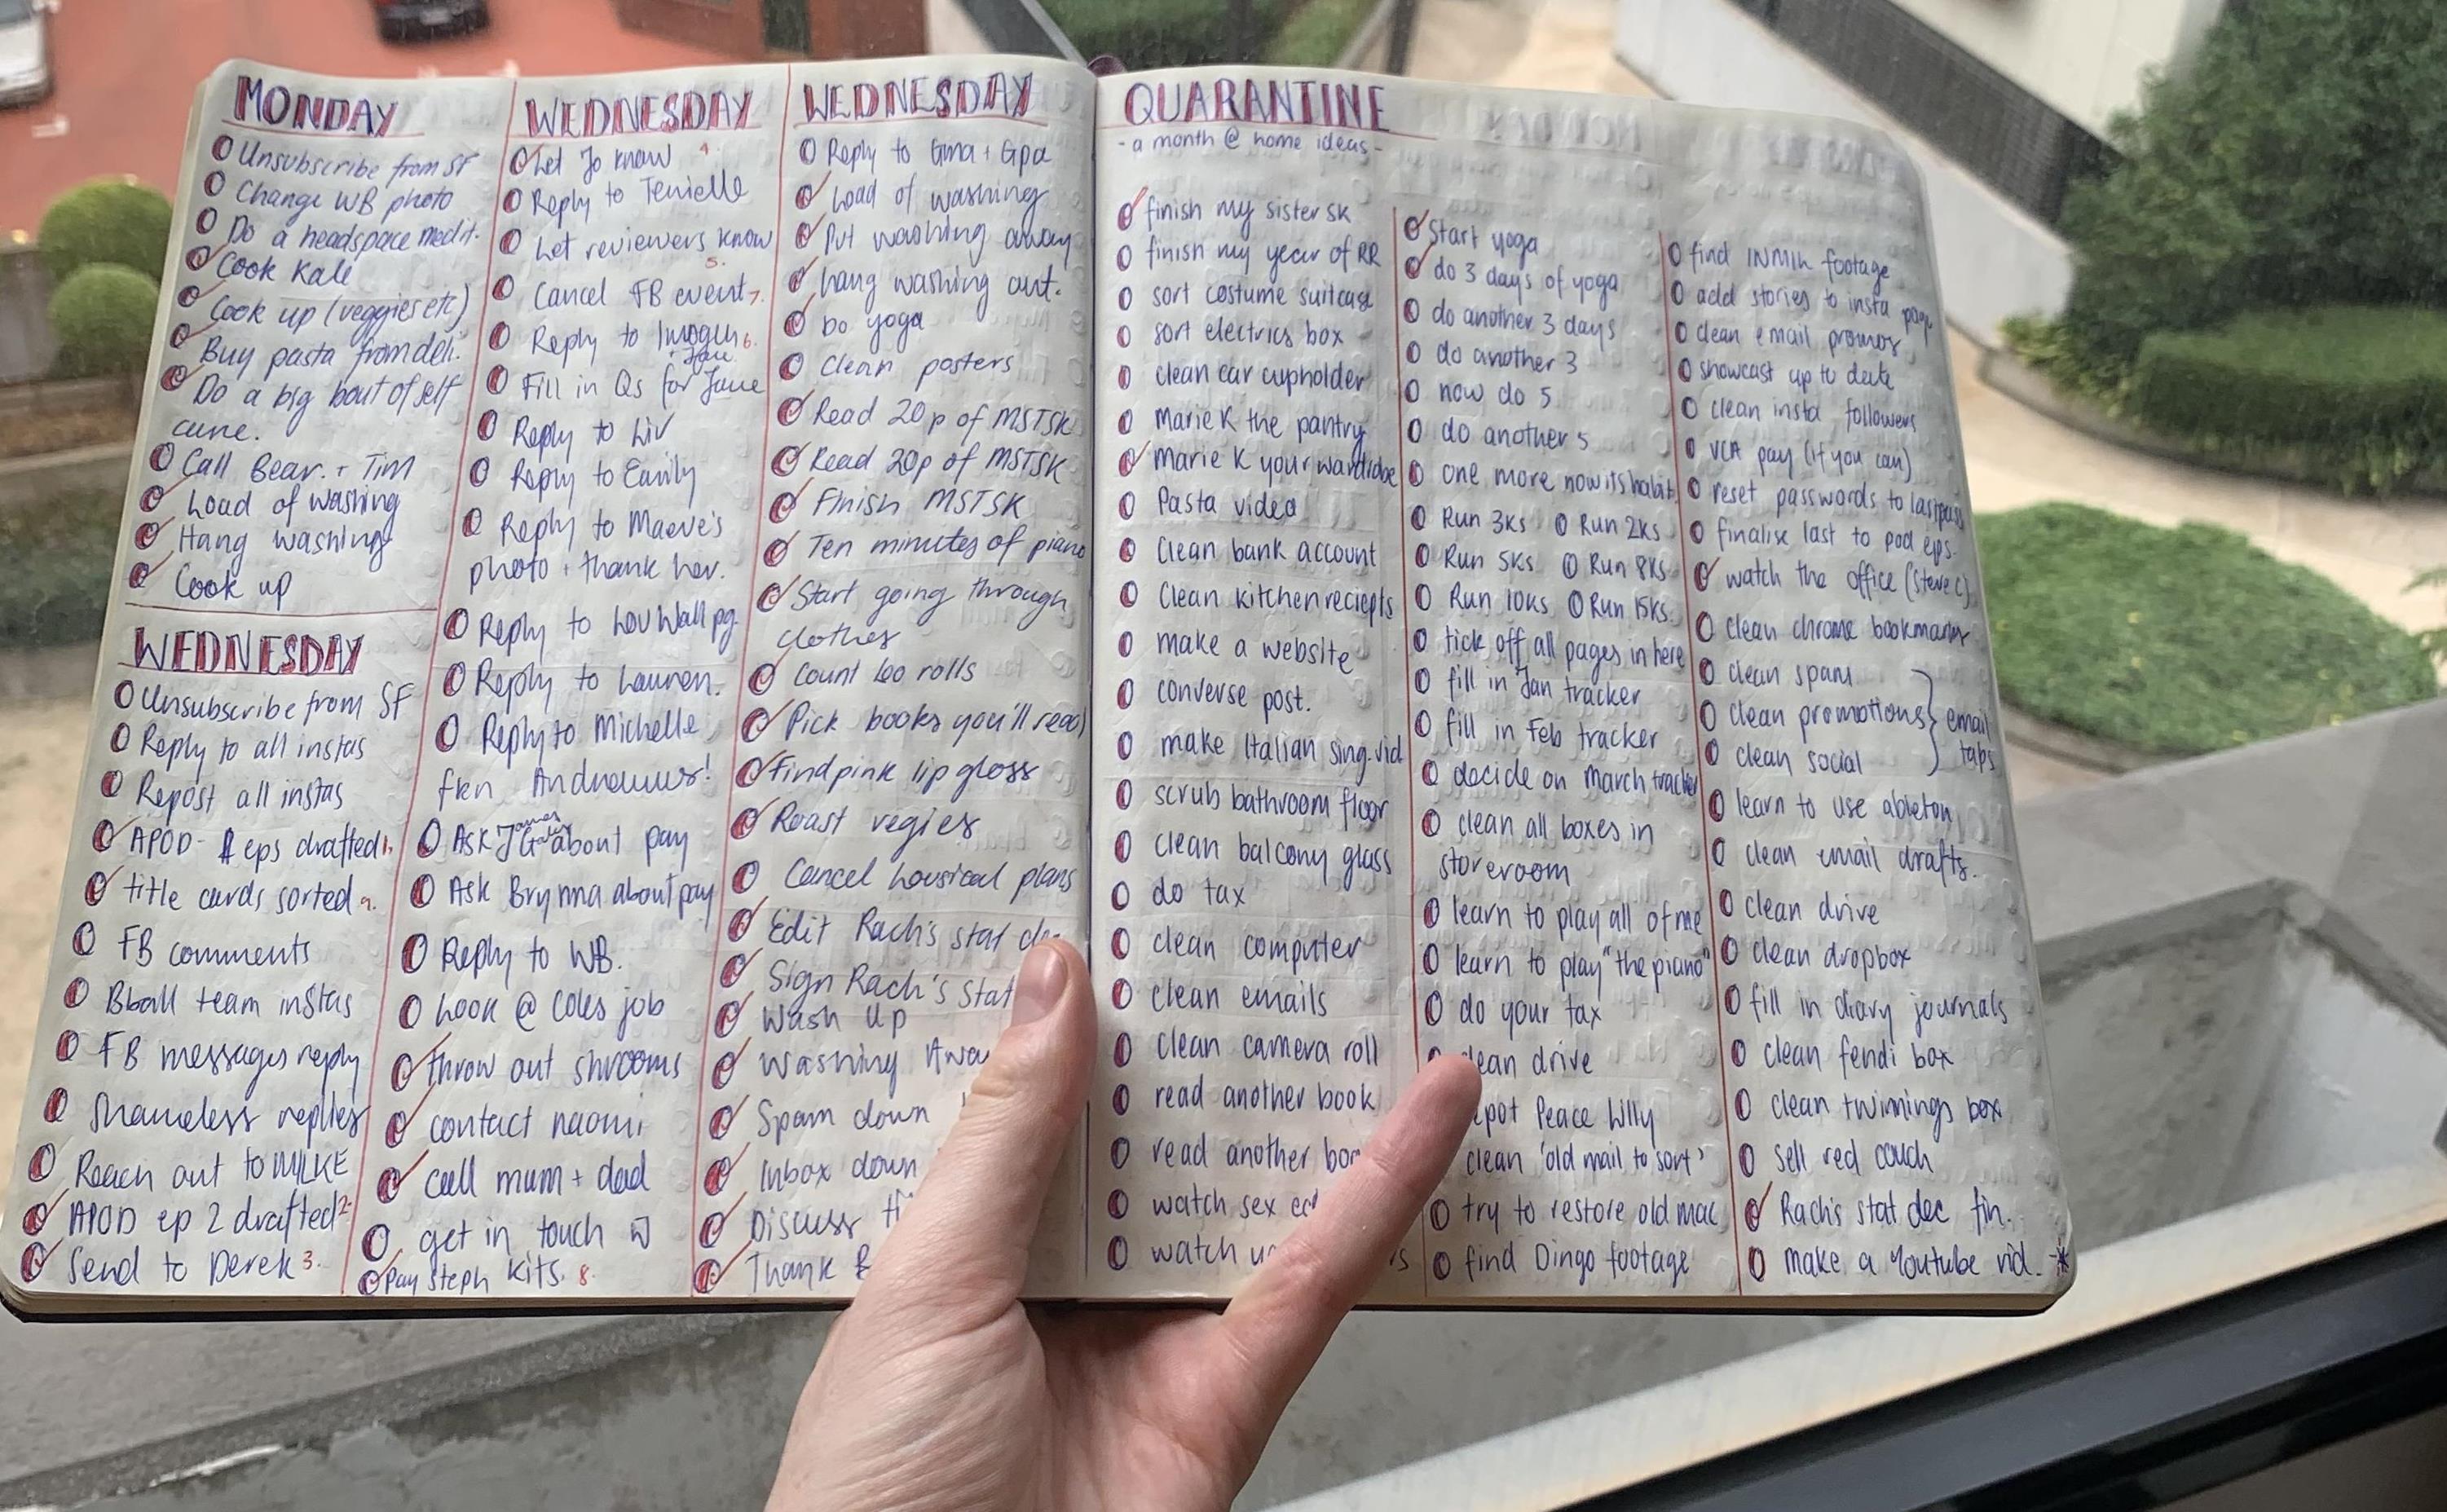 MONDAY
Unsubscribe from SF
Change WB photo
Do a headspace medit.
Cook Kale
Cook up (veggies etc)
Buy pasta from deli.
Do a big bout of self
care.
Call Bear. + Tim
Load of washing
Hang washing
Cook up
WEDNESDAY
Unsubscribe from SF
Reply to all instas
Repost all instas
APOD - eps drafted 1.
title cards sorted 9.
FB comments
Bball team instas
FB messages reply
Shameless replies
Reach out to MILKE
APOD ep 2 drafted 2.
Send to Derek 3.
WEDNESDAY
Let Jo know 4.
Reply to Tenielle
Let reviewers know
5.
Cancel FB event 7.
Reply to Imogen 6.
+ Jane
Fill in Qs for Jane
Reply to Liv
Reply to Emily
Reply to Maeve's
photo + thank her.
Reply to Lou Wall pg.
Reply to Lauren.
Reply to Michelle
Ask James about pay
Ask Brynna about pay
Reply to WB.
Look @ Coles job
throw out shrooms
contact naomi
call mum + dad
get in touch
Pay Steph Kits. 8.
WEDNESDAY
Reply to Gma + Gpa
Load of washing
Put washing away
hang washing out.
Do yoga
Clean posters
Read 20p of MSTSK
Read 20p of MSTSK
Finish MSTSK
Ten minutes of piano
Start going through
clothes
Count loo rolls
Pick books you'll read
Find pink lip gloss
Roast vegies
Cancel housical plans
Edit Rach's stat
Sign Rach's Stat
Wash up
Washing
Spam down
Inbox down
Discuss
Thank
QUARANTINE
- a month @ home ideas -
finish my sister SK
finish my year of RR
sort costume suitcase
sort electrics box
clean car cupholder
Marie K the pantry
Marie K your wardrobe
Pasta video
Clean bank account
Clean kitchen reciepts
make a website
converse post.
make Italian sing. vid
scrub bathroom floor
clean balcony glass
do tax
clean computer
clean emails
clean camera roll
read another book
read another
watch sex
watch
Start yoga
do 3 days of yoga
do another 3 days
do another 3
now do 5
do another 5
one more now its habit
Run 3ks Run 2ks
Run 5ks Run 8ks
Run 10ks Run 15ks
tick off all pages in here
fill in Jan tracker
fill in Feb tracker
decide on March tracker
clean all boxes in
storeroom
learn to play all of me
learn to play "the piano"
do your tax
clean drive
Peace Lilly
clean 'old mail to sort'
try to restore old mac
find Dingo footage
find INMIK footage
add stories to insta page
clean email promos
showcast up to date
clean insta followers
VCA pay (if you can)
reset passwords to lastpass
finalise last to pod eps.
watch the office (Steve C)
clean chrome bookmarks
clean spam
clean promotions } email
clean social tabs
learn to use ableton
clean email drafts.
clean drive
clean dropbox
fill in diary journals
clean fendi box
clean twinings box
sell red couch
Rach's stat dec fin.
make a Youtube vid. *